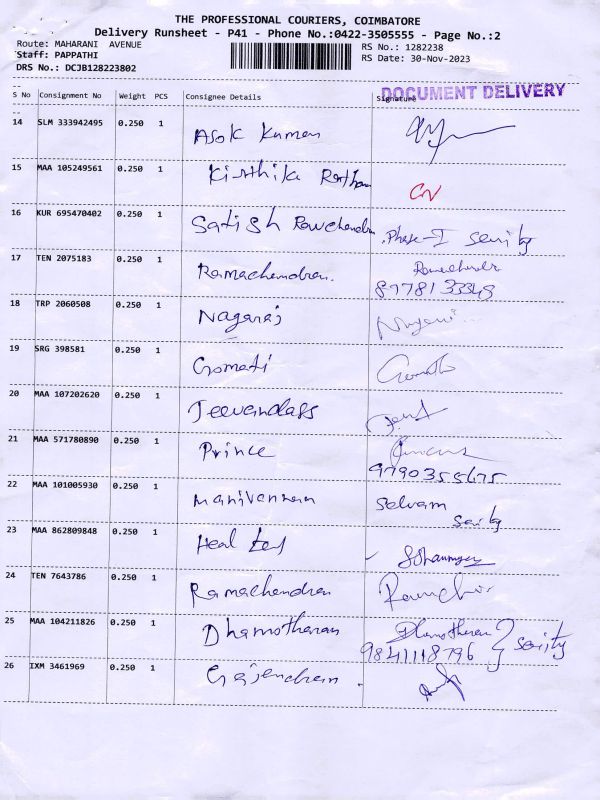 THE PROFESSIONAL COURIERS, COIMBATORE
Delivery Runsheet - P41 - Phone No.:0422-3505555 - Page No.:2
Route: MAHARANI AVENUE RS No.: 1282238
Staff: PAPPATHI RS Date: 30-Nov-2023
DRS No.: DCJB128223802
DOCUMENT DELIVERY
S No Consignment No Weight PCS Consignee Details Signature
14 SLM 333942495 0.250 1 Asok Kumar
15 MAA 105249561 0.250 1 Kirthika CN
16 KUR 695470402 0.250 1 Satish Ramchandra Phase-I
17 TEN 2075183 0.250 1 Ramachendran.
18 TRP 2060508 0.250 1 Nagaraj
19 SRG 398581 0.250 1 Gomati
20 MAA 107202620 0.250 1 Jeevandass
21 MAA 571780890 0.250 1 Prince
9790355675
22 MAA 101005930 0.250 1 Manivannan Selvam
23 MAA 862809848 0.250 1 Heal
24 TEN 7643786 0.250 1 Ramachendran
25 MAA 104211826 0.250 1 Dhamotharan Dhamotharan
9841118796
26 IXM 3461969 0.250 1 Gajendran.